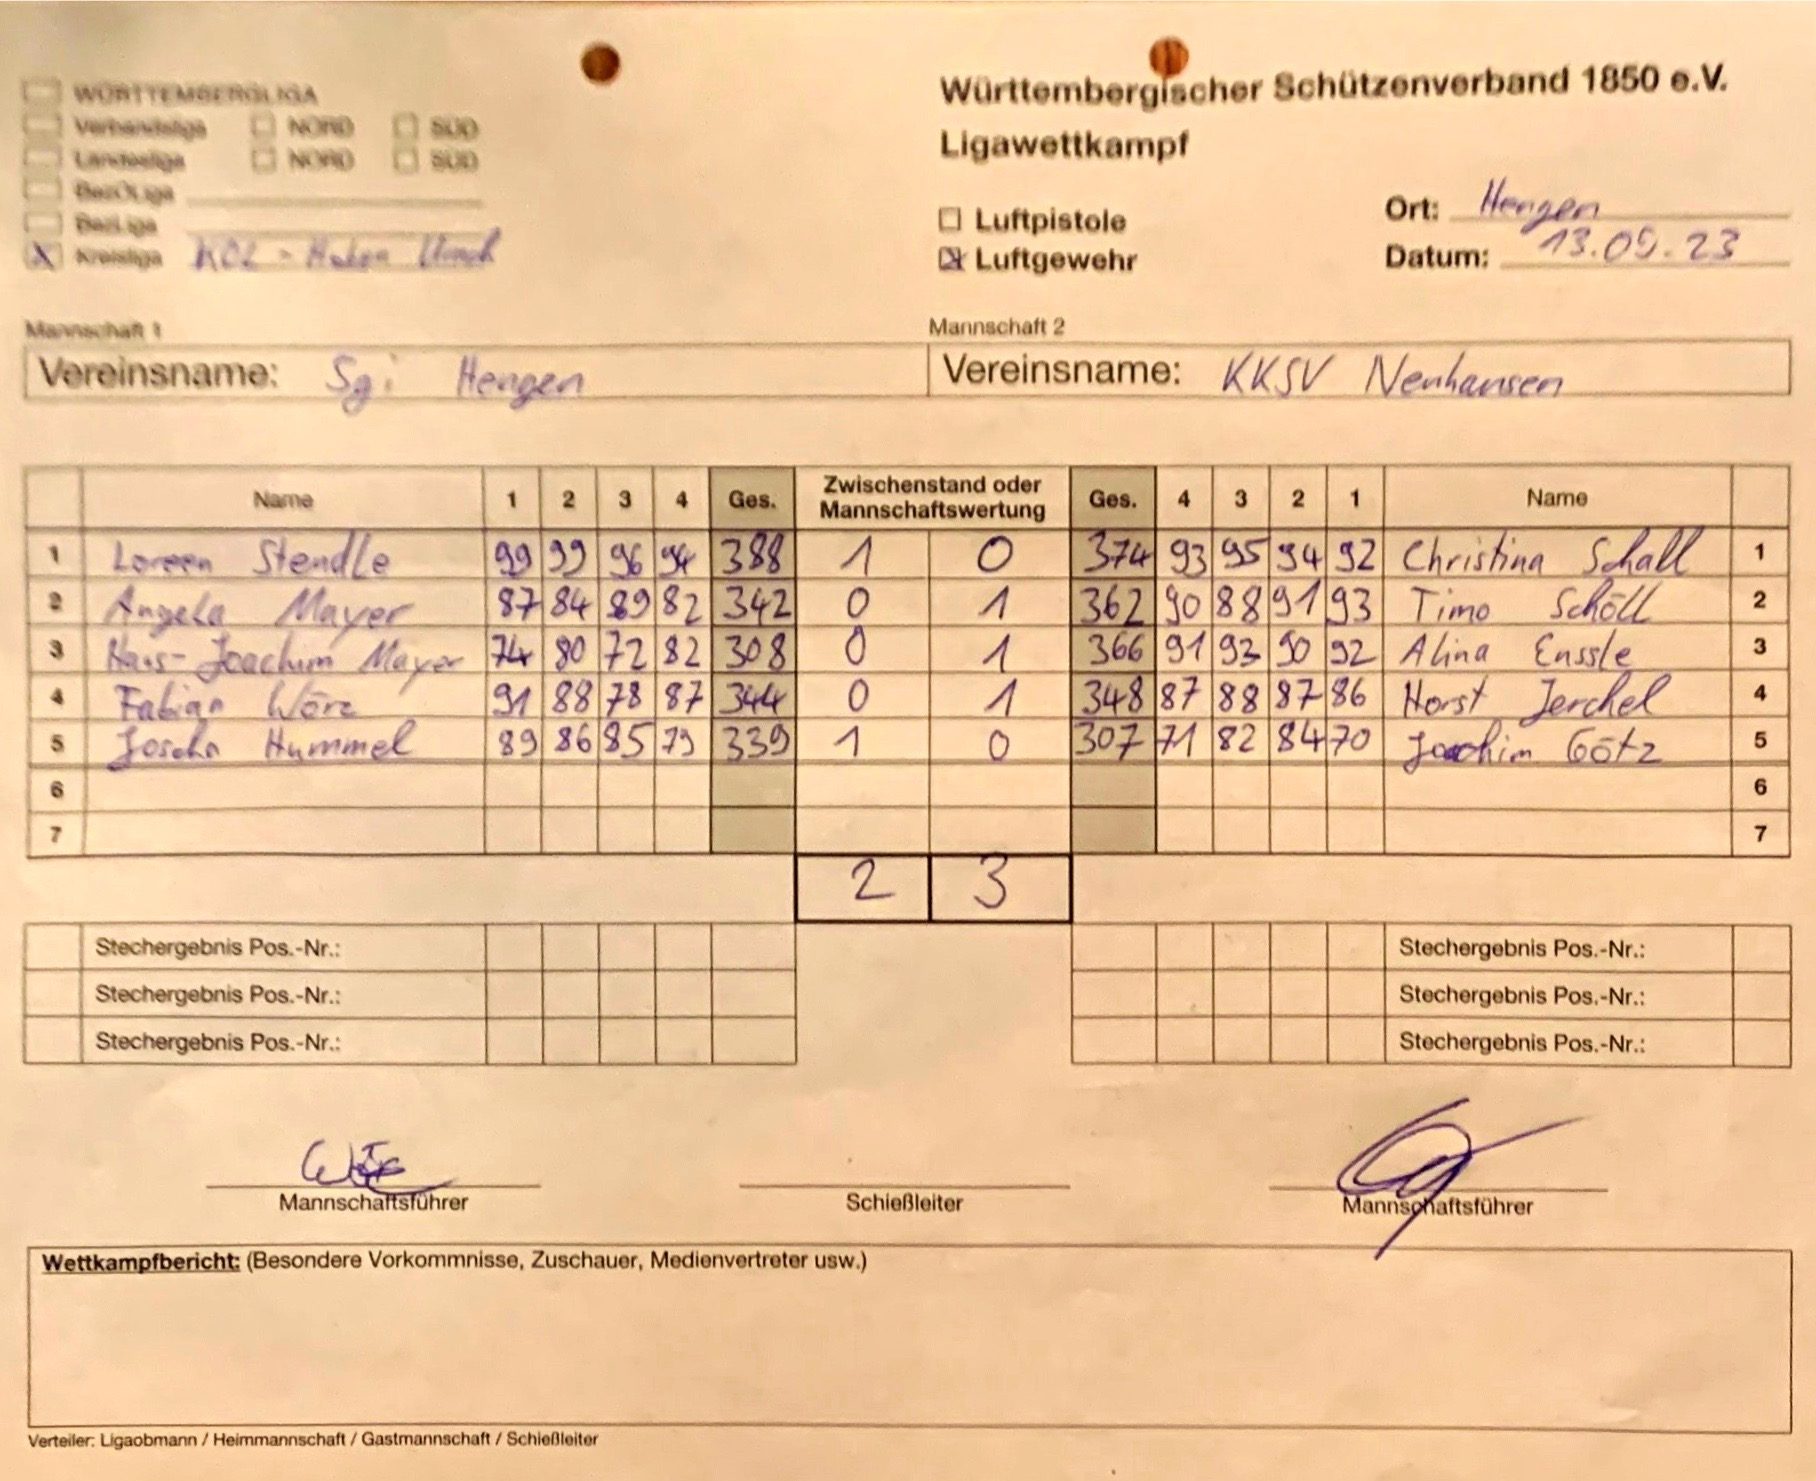 WÜRTTEMBERGLIGA
Verbandsliga NORD SÜD
Landesliga NORD SÜD
Bez.Liga
Kreisliga KOL - Hohen Urach
Württembergischer Schützenverband 1850 e.V.
Ligawettkampf
Luftpistole
Luftgewehr
Ort: Hengen
Datum: 13.09.23
Mannschaft 1
Vereinsname: Sgi Hengen
Mannschaft 2
Vereinsname: KKSV Neuhausen
Name 1 2 3 4 Ges. Zwischenstand oder Mannschaftswertung Ges. 4 3 2 1 Name
1 Loreen Stendle 99 99 96 94 388 1 0 374 93 95 94 92 Christina Schall 1
2 Angela Mayer 87 84 89 82 342 0 1 362 90 88 91 93 Timo Schöll 2
3 Hans-Joachim Mayer 74 80 72 82 308 0 1 366 91 93 90 92 Alina Enssle 3
4 Fabian Wörz 91 88 78 87 344 0 1 348 87 88 87 86 Horst Jerchel 4
5 Joscha Hummel 89 86 85 79 339 1 0 307 71 82 84 70 Joachim Götz 5
6 6
7 7
2 3
Stechergebnis Pos.-Nr.: Stechergebnis Pos.-Nr.:
Stechergebnis Pos.-Nr.: Stechergebnis Pos.-Nr.:
Stechergebnis Pos.-Nr.: Stechergebnis Pos.-Nr.:
Mannschaftsführer Schießleiter Mannschaftsführer
Wettkampfbericht: (Besondere Vorkommnisse, Zuschauer, Medienvertreter usw.)
Verteiler: Ligaobmann / Heimmannschaft / Gastmannschaft / Schießleiter